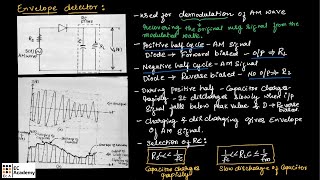 Envelope detector:
- Used for demodulation of AM wave
Recovering the original msg signal from the
modulated wave.
- Positive half cycle - AM Signal
Diode → Forward biased - O/P → R₂
- Negative half cycle - AM Signal
Diode → Reverse biased - No O/P → R₂
- During positive half - Capacitor charges
rapidly - It discharges slowly when i/p
Signal falls below peak value & D → Reverse
biased
- Charging & discharging gives Envelope
Of AM signal.
- Selection of RC:
Capacitor charges
rapidly
Slow discharge of Capacitor
EC
Academy